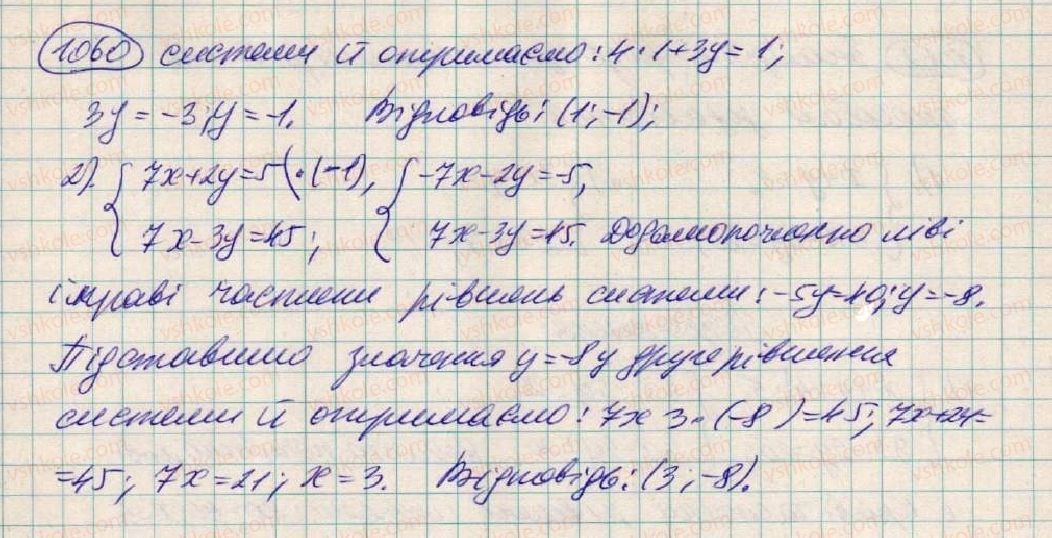 1060 системи й отримаємо: 4·1+3y=1;
3y=-3; y=-1. Відповідь: (1;-1);
2). { 7x+2y=5 |·(-1), { -7x-2y=-5,
7x-3y=45; 7x-3y=45. Додамо почленно ліві
і праві частини рівнянь системи: -5y=40; y=-8.
Підставимо значення y=-8 у друге рівняння
системи й отримаємо: 7x 3·(-8)=45; 7x+24=
=45; 7x=21; x=3. Відповідь: (3;-8).